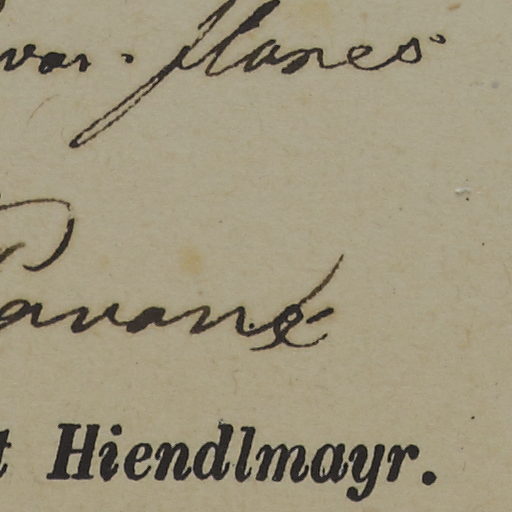 var. flanes
Pavané
t Hiendlmayr.